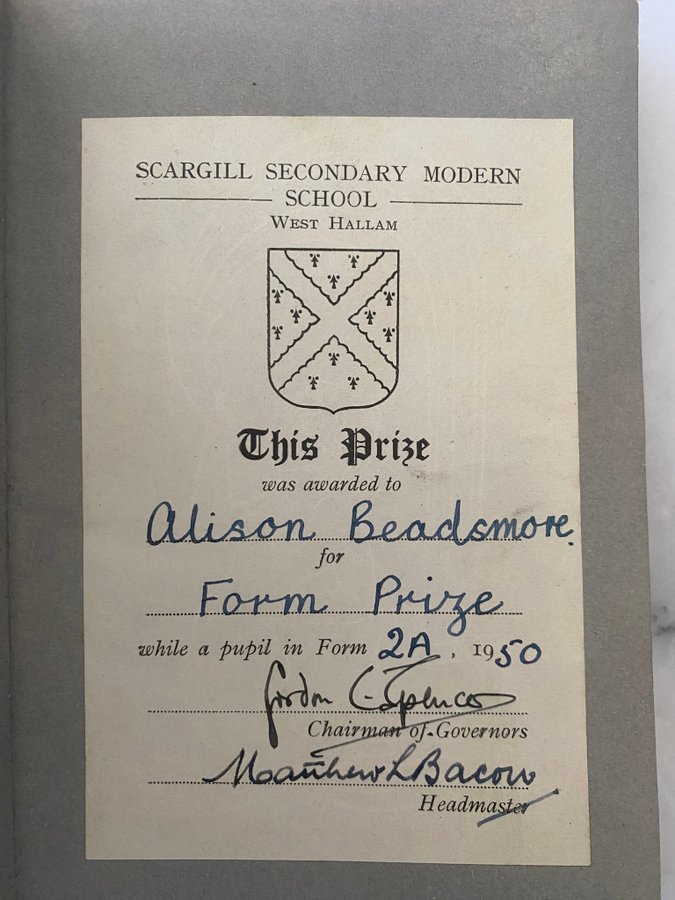 SCARGILL SECONDARY MODERN
SCHOOL
WEST HALLAM
This Prize
was awarded to
Alison Beadsmore.
for
Form Prize
while a pupil in Form 2A, 1950
Gordon C Spencer
Chairman of Governors
Matthew L Bacon
Headmaster